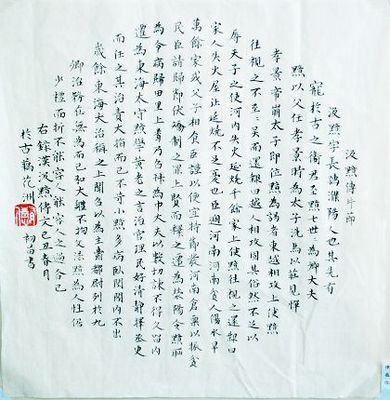 汲黯傳片節
汲黯字長孺濮陽人也其先有
寵於古之衛君至黯七世為卿大夫
黯以父任孝景時為太子洗馬以莊見憚
孝景帝崩太子即位黯為謁者東越相攻上使黯
往視之不至至吳而還報曰越人相攻固其俗然不足以
辱天子之使河內失火延燒千餘家上使黯往視之還報曰
家人失火屋比延燒不足憂也臣過河南河南貧人傷水旱
萬餘家或父子相食臣謹以便宜持節發河南倉粟以振貧
民臣請歸節伏矯制之罪上賢而釋之遷為滎陽令黯恥
為令病歸田里上聞乃召拜為中大夫以數切諫不得久留內
遷為東海太守黯學黃老之言治官理民好清靜擇丞史
而任之其治責大指而已不苛小黯多病臥閨閤內不出
歲餘東海大治稱之上聞召以為主爵都尉列於九
卿治務在無為而已弘大體不拘文法黯為人性倨
少禮面折不能容人能容人之過合己
右錄漢汲黯傳文己丑春月
於古洲